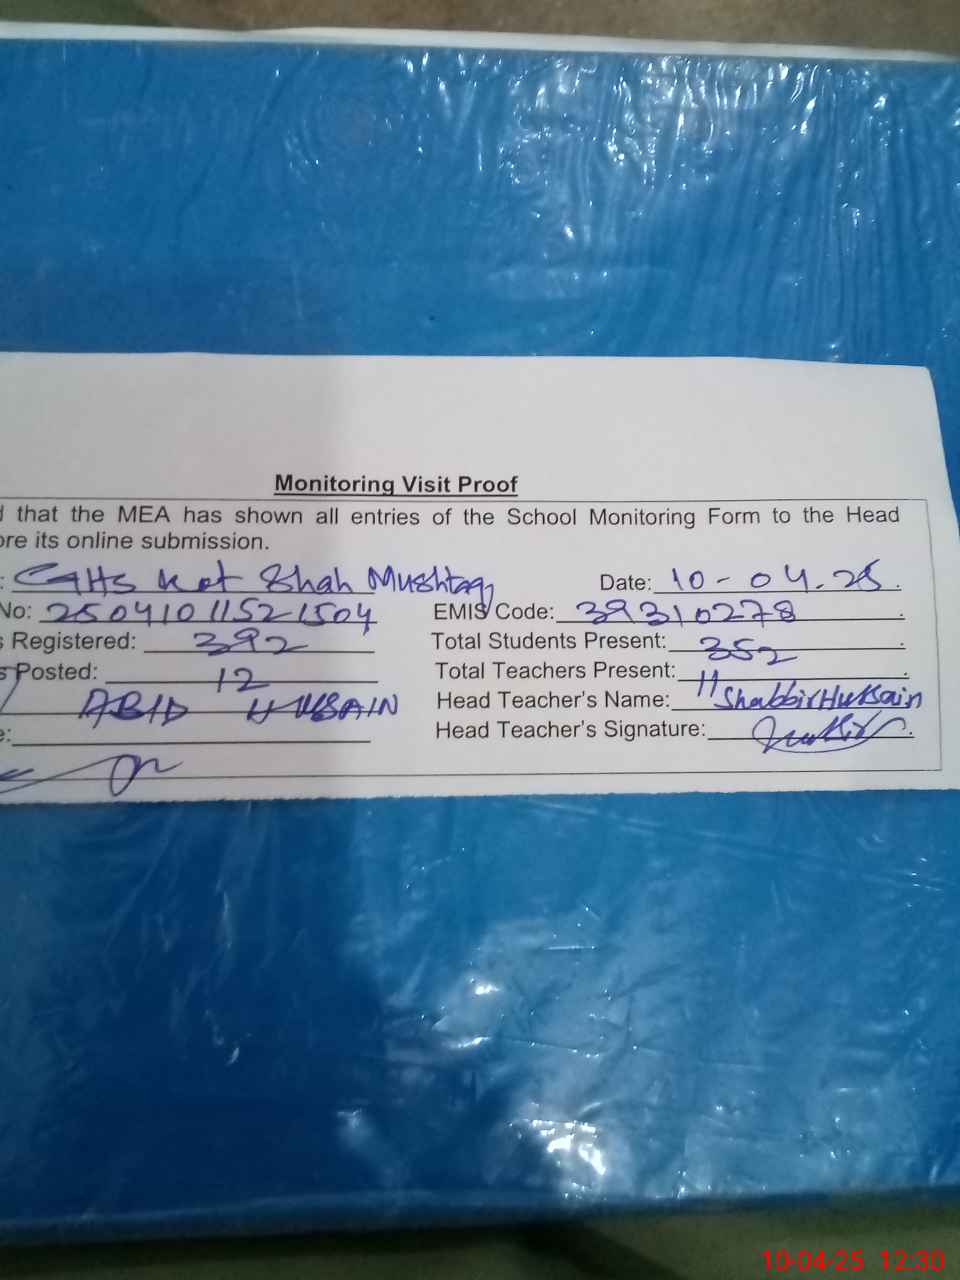 Monitoring Visit Proof
that the MEA has shown all entries of the School Monitoring Form to the Head
ore its online submission.
: GHS Kot Shah Mushtaq Date: 10-04.25
No: 25041011521504 EMIS Code: 39310278
s Registered: 392 Total Students Present: 352
s Posted: 12 Total Teachers Present: 11
ABID HUSSAIN Head Teacher's Name: Shabbir Hussain
e: Head Teacher's Signature:
10-04-25 12:30